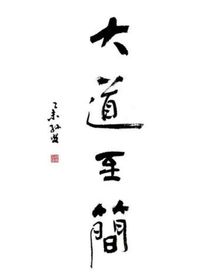 大道至簡